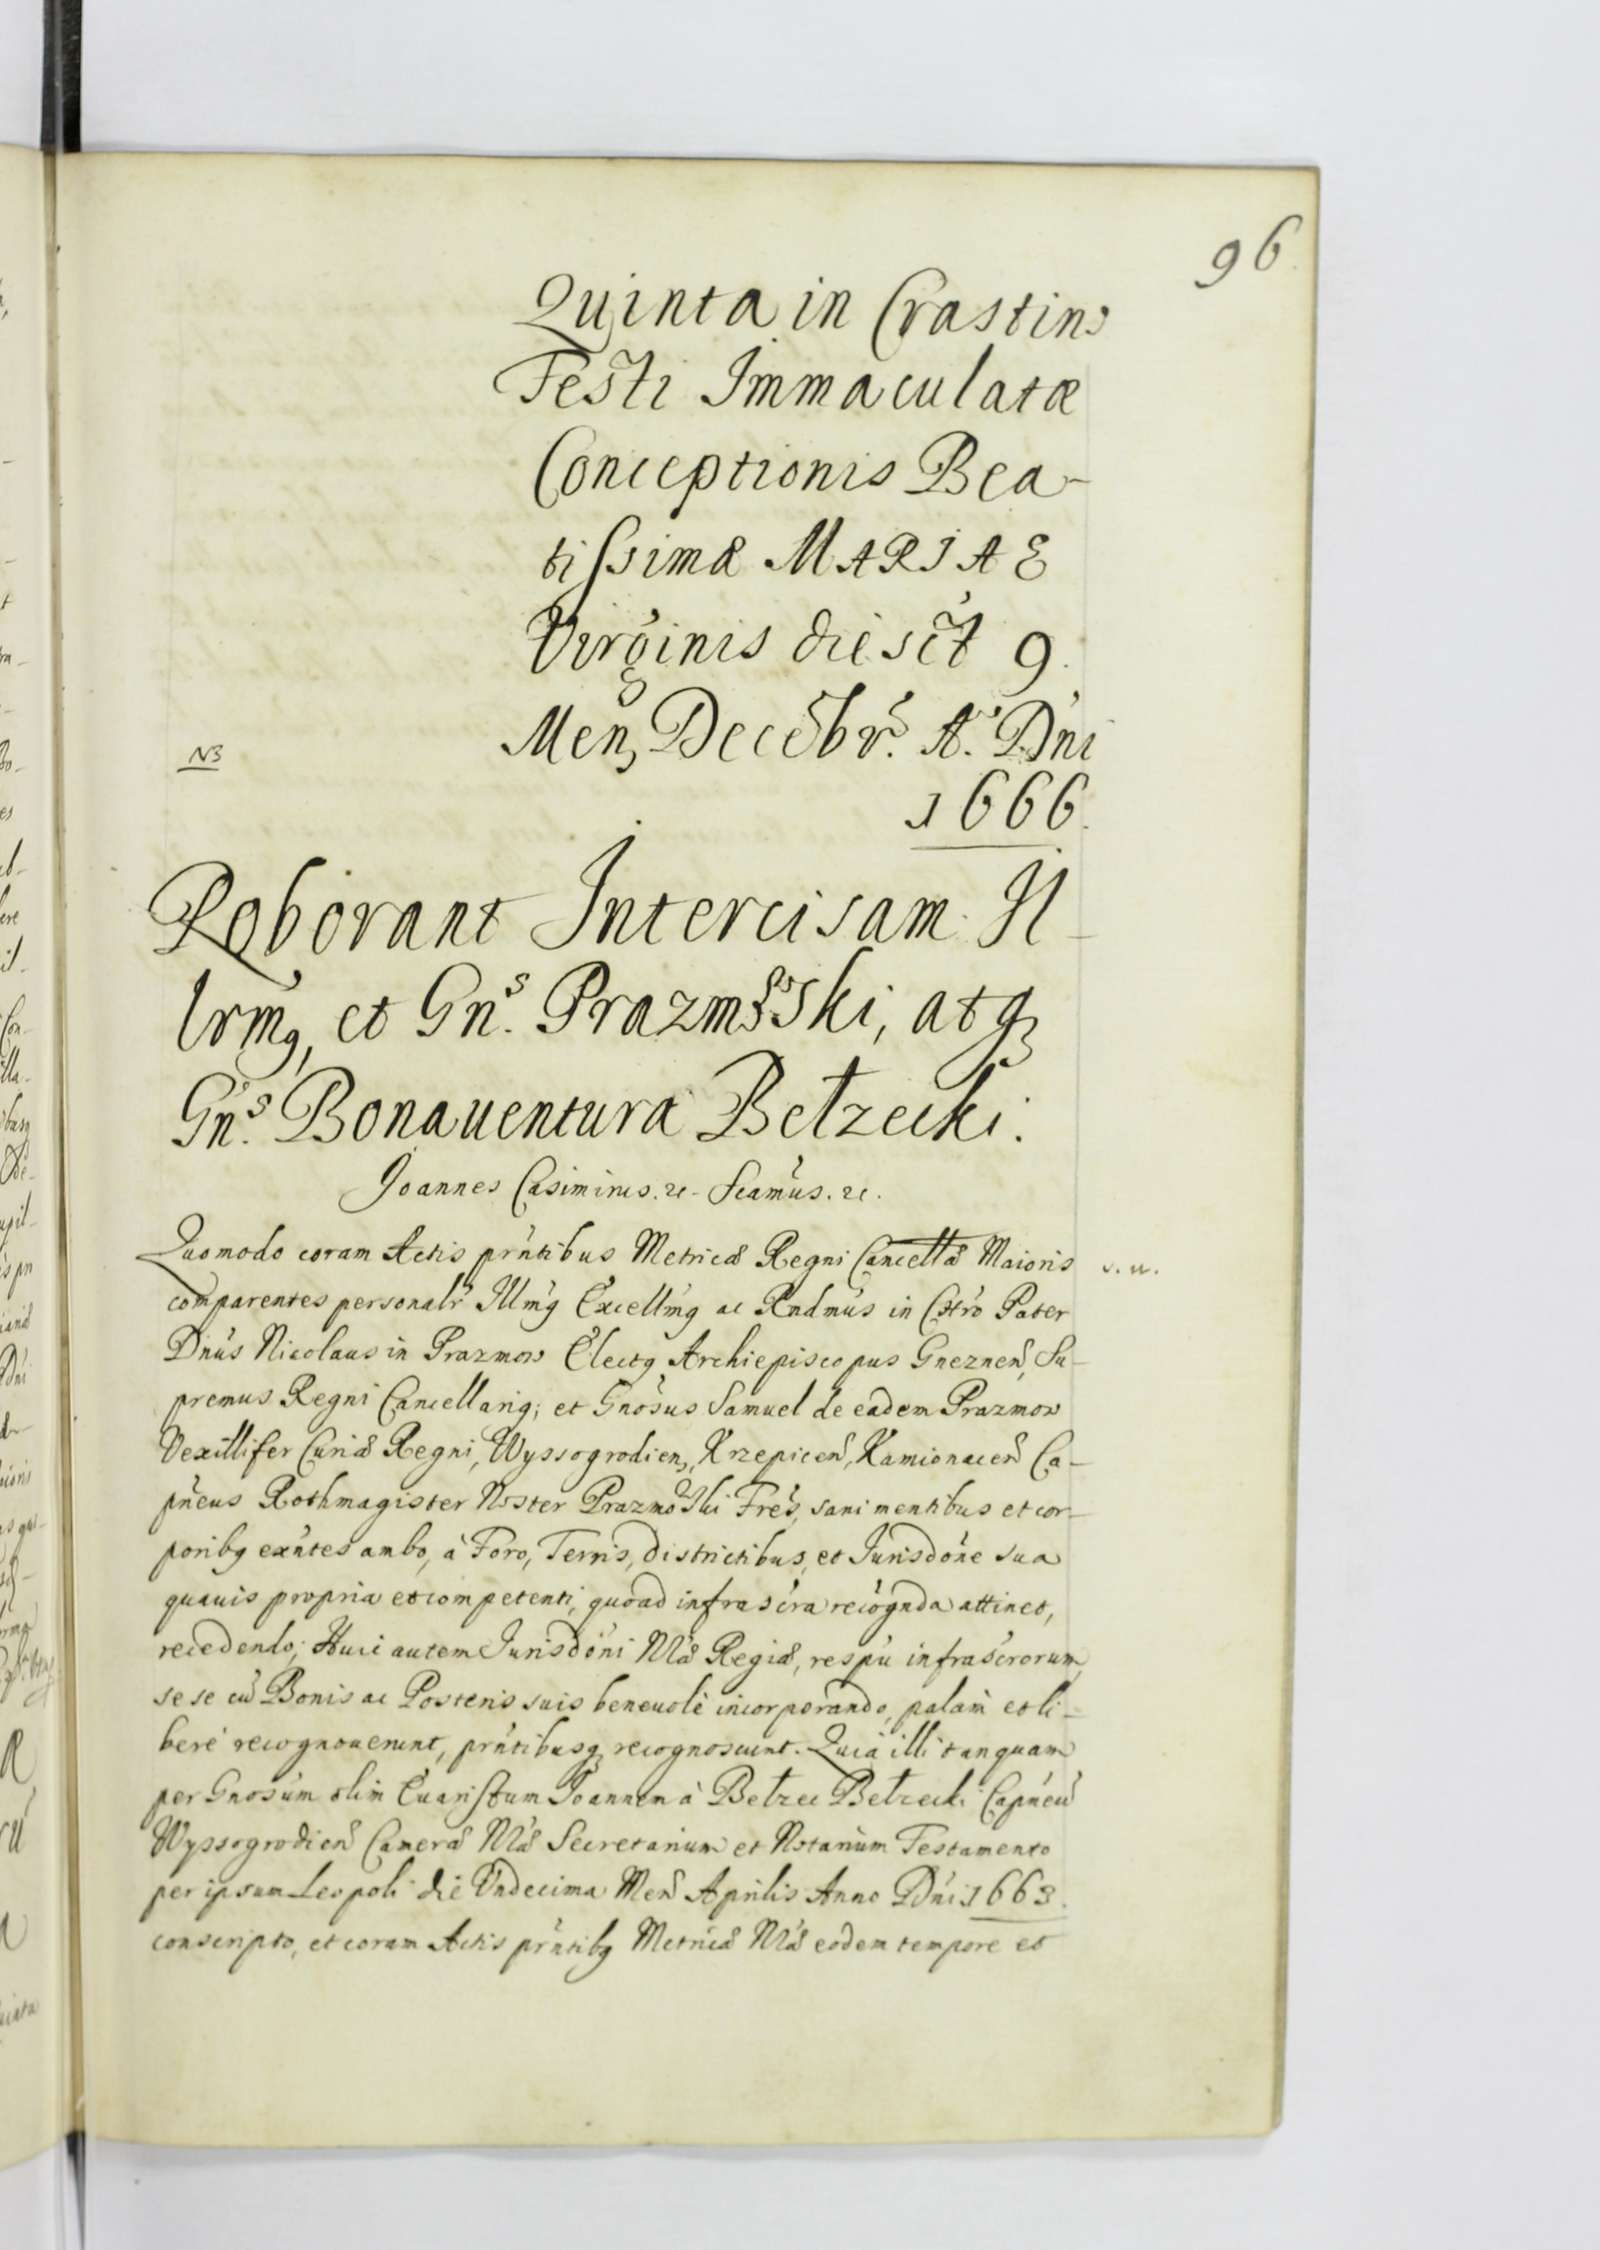 96
Quinta in Crastino
Festi Immaculatæ
Conceptionis Bea-
tissimæ MARIAE
Virginis die sct̃ 9.
Menẓ Decẽbr. A. Dni
1666.
NB
Roborant Intercisam Il-
lrmꝯ, et Gn.s Prazmowski, atqꝫ
Gn.s Bonauentura Bełzecki.
Joannes Casimirus. ꝛc. Feamus. ꝛc.
Quomodo coram Actis prntibus Metricæ Regni Cancellæ Maioris
s. u.
comparentes personalr Illmꝯ Excellmꝯ ac Rndmus in Chro Pater
Dnus Nicolaus in Prazmow Electꝯ Archiepiscopus Gneznen, Su-
premus Regni Cancellariꝯ; et Gnosus Samuel de eadem Prazmow
Vexillifer Curiæ Regni, Wyssogrodien, Krzepicen, Kamionacen Ca-
pneus Rothmagister Noster Prazmowski Fres, sani mentibus et cor-
poribꝯ exntes ambo, à Foro, Terris, districtibus, et Jurisdone sua
quauis propria et competenti, quoad infrascra recognda attinet,
recedendo; Huic autem Jurisdoni Nræ Regiæ, respu infrascrorum,
se se cũ Bonis ac Posteris suis beneuolè incorporando, palam et li-
berè recognouerunt, prntibusqꝫ recognoscunt. Quia illi tanquam
per Gnosum olim Euaristum Joannem à Bełzec Bełzecki Capneũ
Wyssogrodien Cameræ Nræ Secretarium et Notarium Testamento
per ipsum Leopoli die Vndecima Men Aprilis Anno Dni 1663.
conscripto, et coram Actis prntibꝯ Metricæ Nræ eodem tempore et